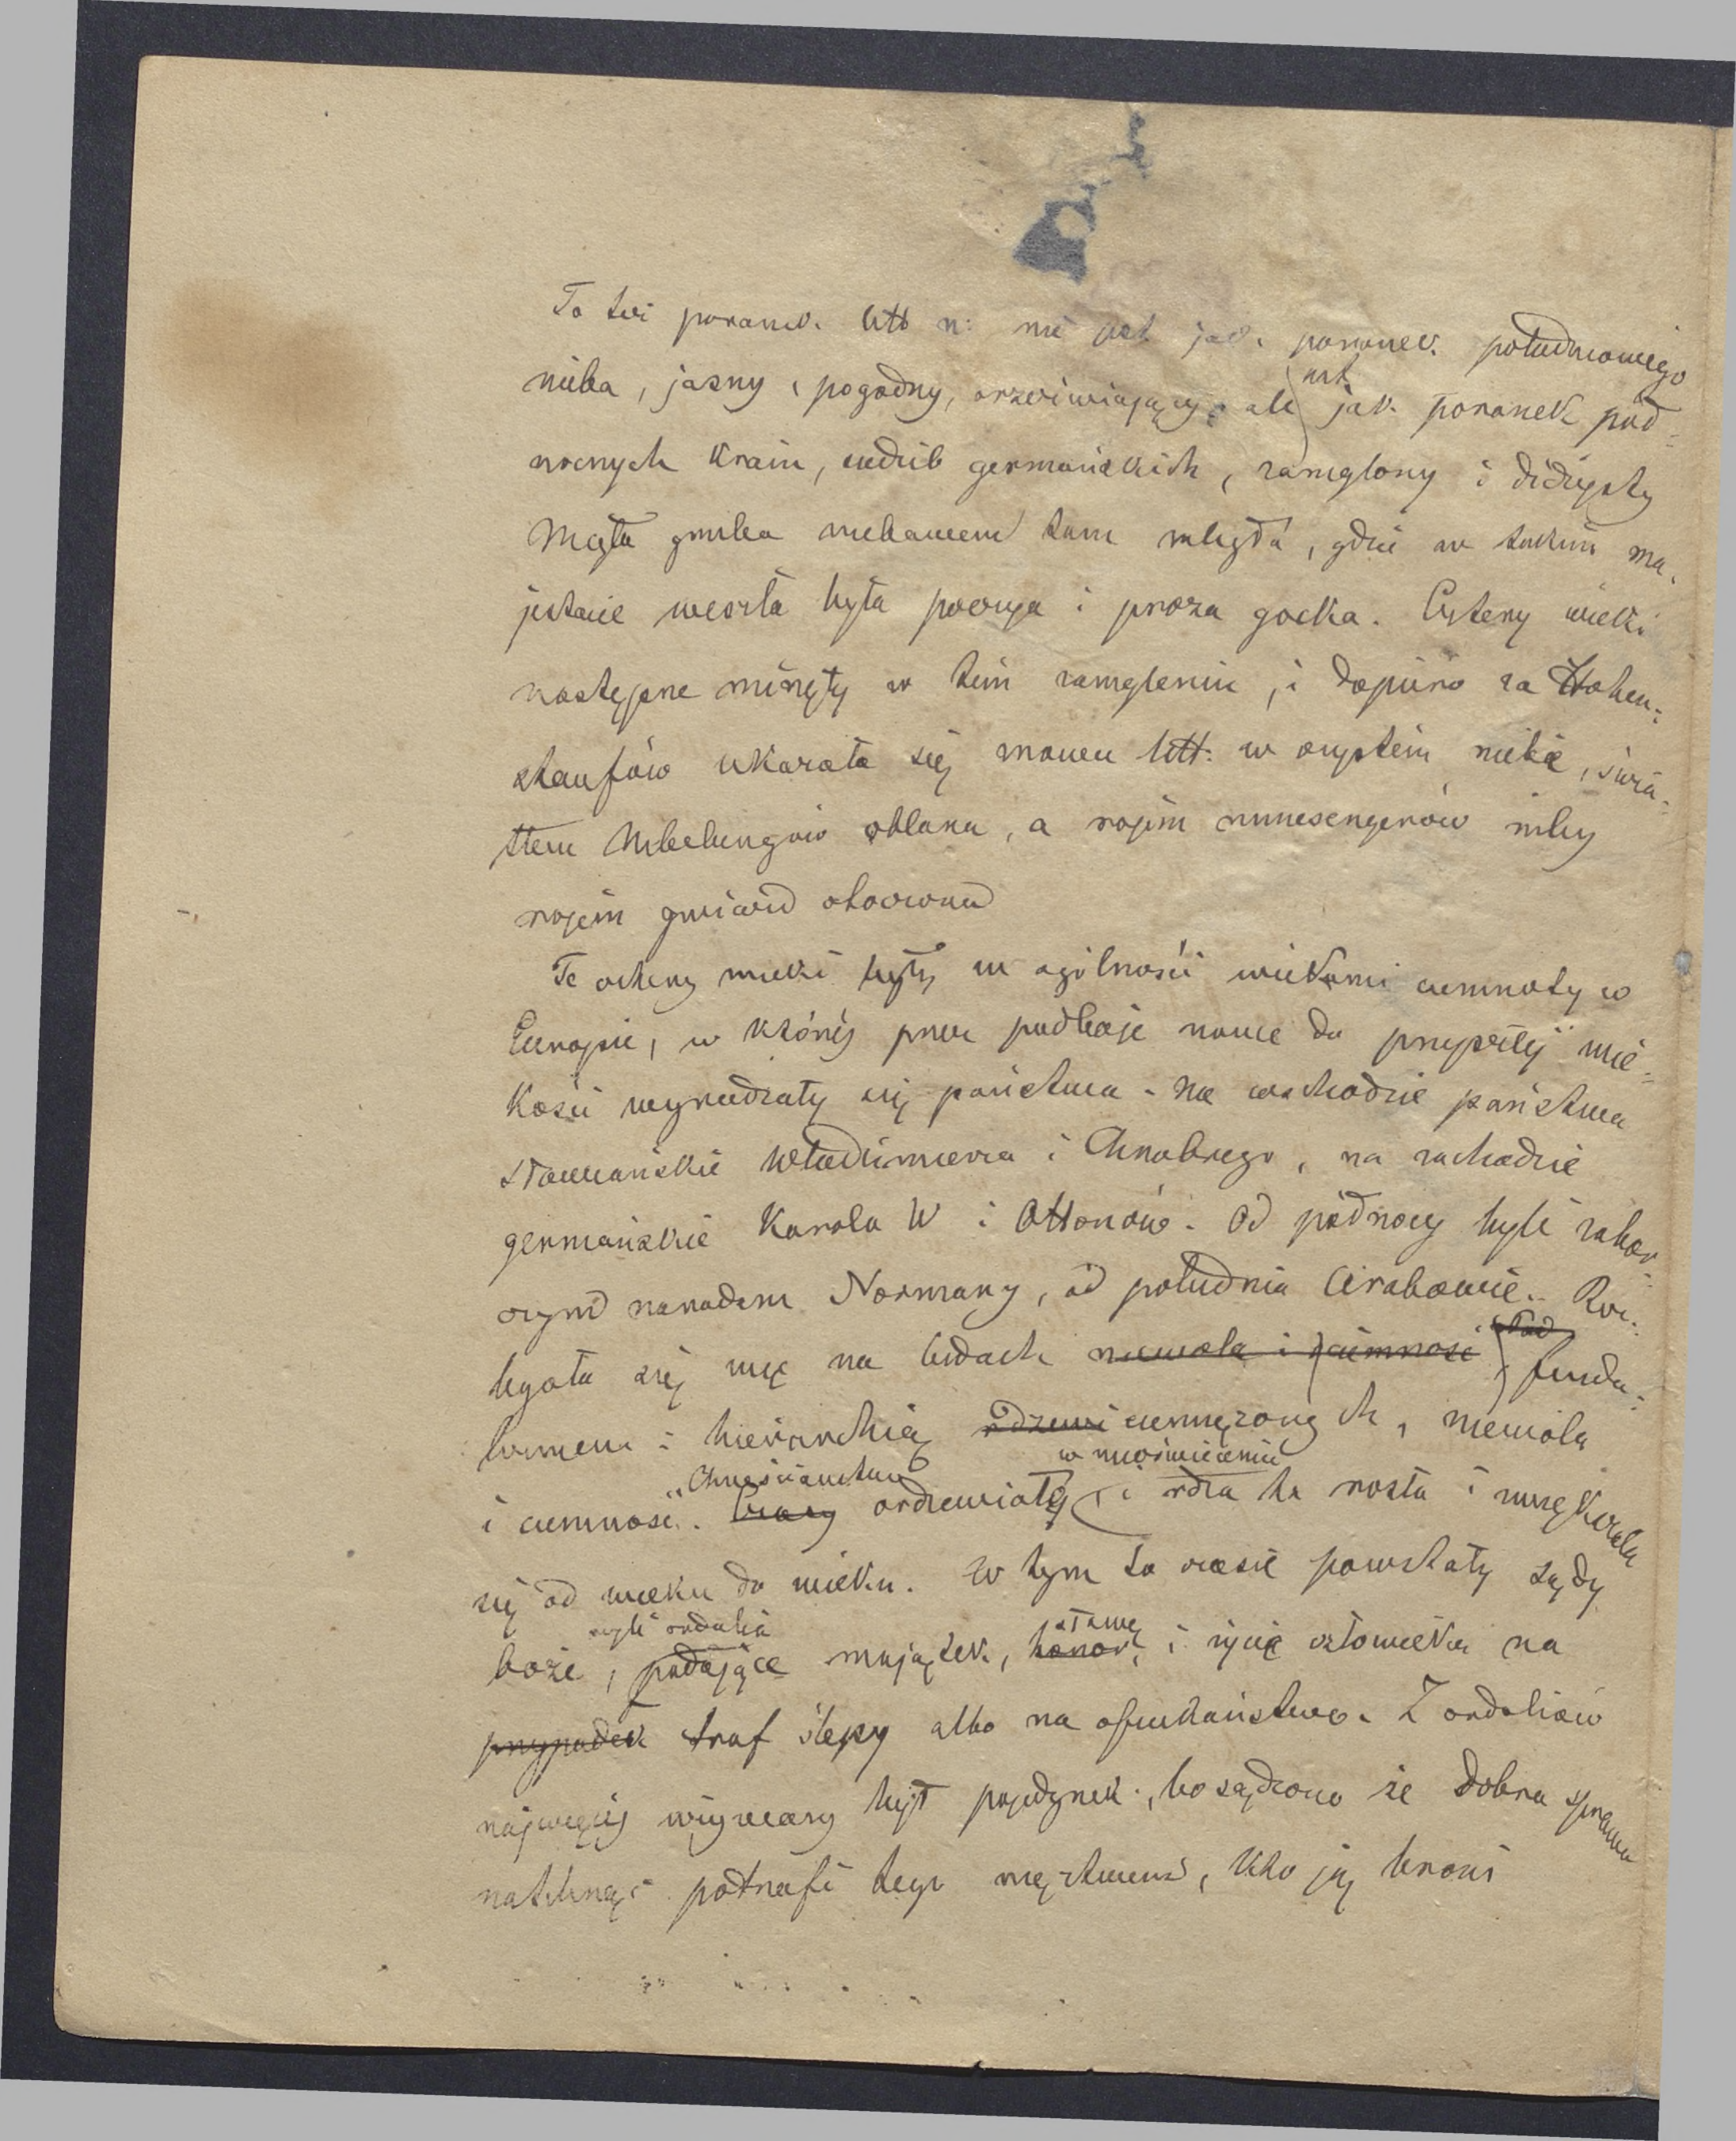 To też poranek litt n: nie jest jak poranek południowego
nieba, jasny, pogodny, orzeźwiający, ale jest jak poranek pół-
nocnych krain, siedzib germańskich, zamglony i dżdżysty
Mgła gruba niebawem tam zległa, gdzie w takim ma-
jestacie weszła była poezyja i proza gocka. Cztery wieki
następne minęły w tem zamgleniu, i dopiero za Hohen-
staufów ukazała się znowu litt: w czystem niebie, świa-
tłem Nibelungów oblana, a rojem minesengerów niby
rojem gwiazd otoczona
Te cztery wieki były w ogólności wiekami ciemnoty w
Europie, w której przez podboje nowe do przyszłej wiel-
kości wyradzały się państwa. Na wschodzie państwa
słowiańskie Włodzimierza i Chrobrego, na zachodzie
germańskie Karola W i Ottonów. Od północy byli zabor-
czym narodem Normany, od południa Arabowie. Roz-
legała się więc na ludach niewola i ciemność pod feuda-
lizmem i hierarchią rdzewi ciemiężonych, niewola
i ciemność. Czasy Chrześciaństwo ordzewiały w nieoświeceniu, i rdza ta rosła i zwiększała
się od wieku do wieku. W tym to czasie powstały sądy
boże, czyli ordalia podające majątek, honor, sławę i życie człowieka na
przypadek traf ślepy albo na oszukaństwo. Z ordaliów
najwięcej wzywany był pojedynek, bo sądzono że dobra sprawa
natchnąć potrafi tego męztwem, kto ją broni